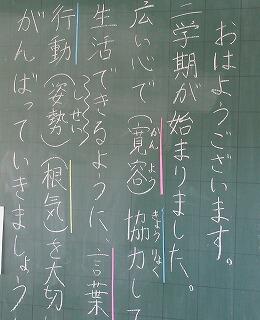 おはようございます。
二学期が始まりました。
広い心で(寛容)協力して
生活できるように、言葉
行動(姿勢)(根気)を大切
がんばっていきましょう